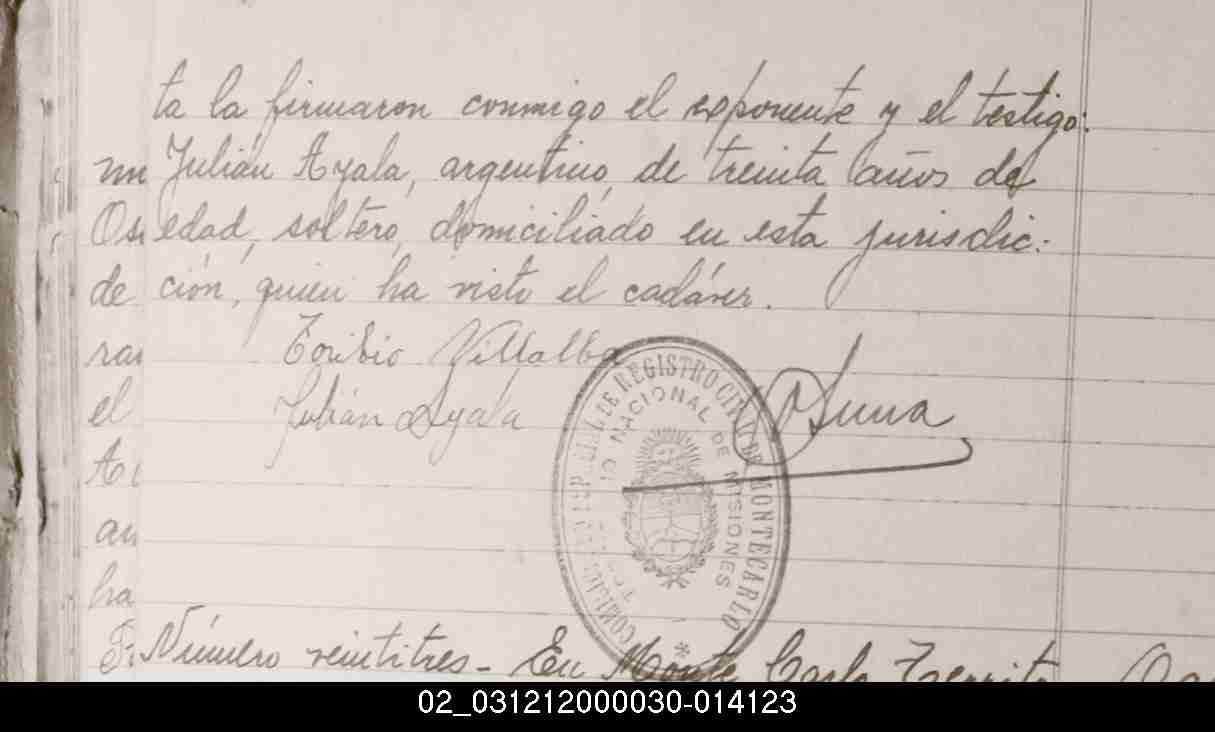 ta la firmaron conmigo el exponente y el testigo:
Julián Ayala, argentino, de treinta años de
edad, soltero, domiciliado en esta jurisdic:
ción, quien ha visto el cadáver.
Toribio Villalba
Julián Ayala
REGISTRO CIVIL DE MONTECARLO
NACIONAL DE MISIONES
Número veintitres - En Monte Carlo Territo
02_031212000030-014123